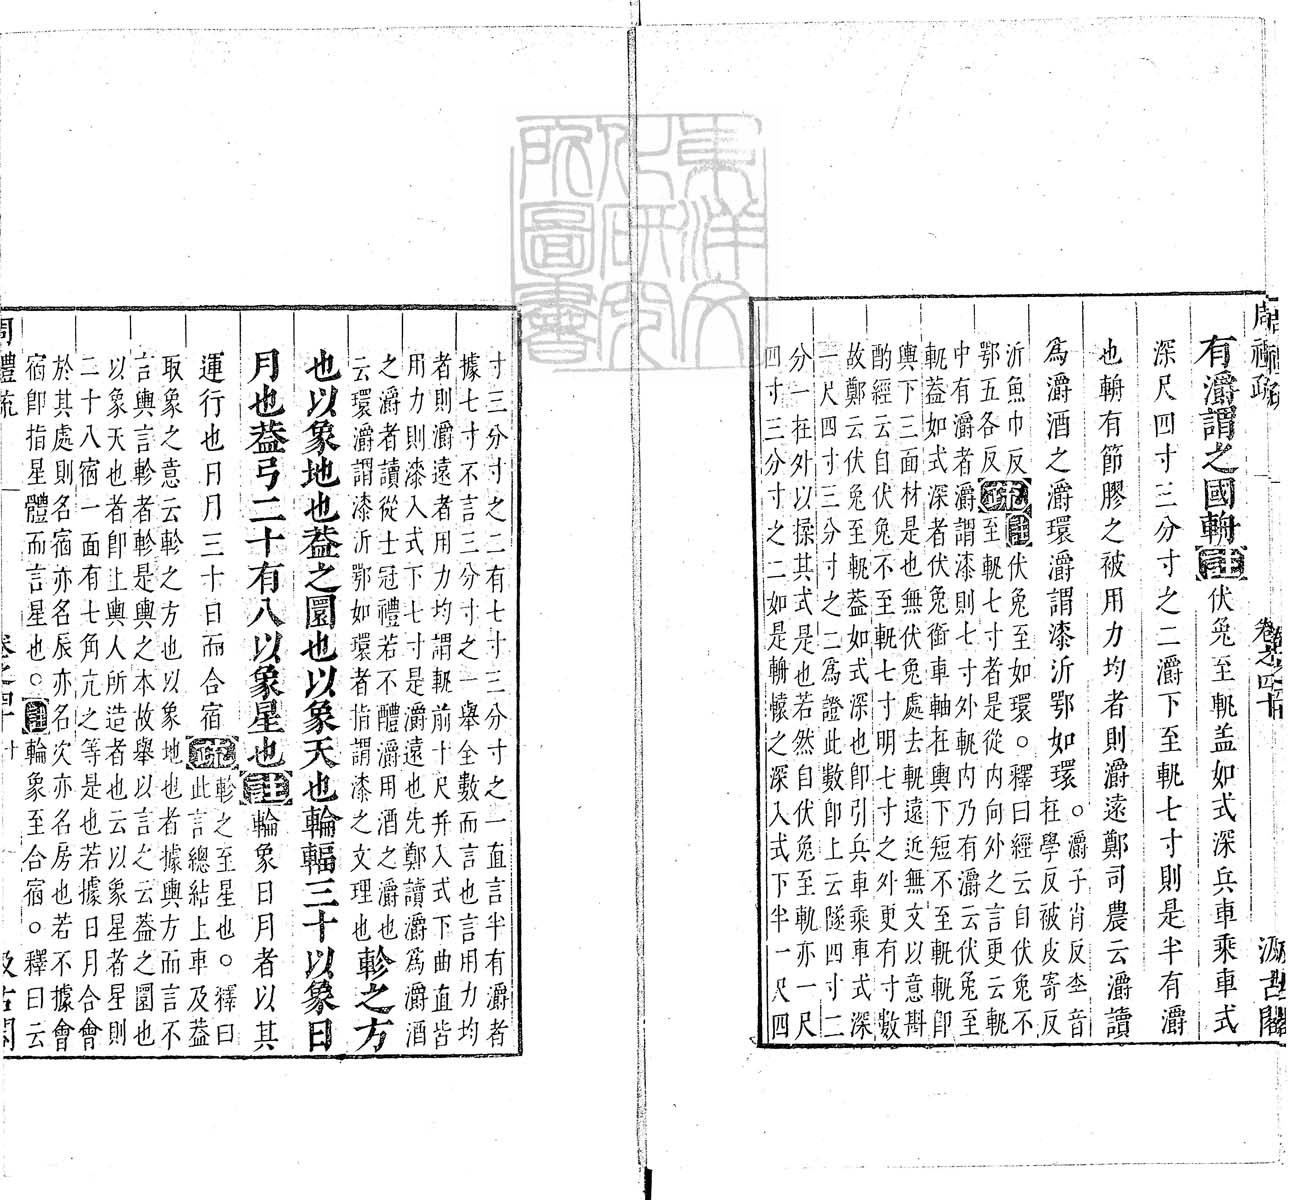 周禮疏
卷之四十
汲古閣
有灂謂之國輈註伏兔至軓盖如式深兵車乘車式
深尺四寸三分寸之二灂下至軓七寸則是半有灂
也輈有節膠之被用力均者則灂遠鄭司農云灂讀
為灂酒之灂環灂謂漆沂鄂如環
。灂子肖反杢音
在學反被皮寄反
沂魚巾反
鄂五各反
疏
註伏兔至如環。釋曰經云自伏兔不
至軓七寸者是從内向外之言更云軓
中有灂者灂謂漆則七寸外軓内乃有灂云伏兔至
軓葢如式深者伏兔銜車軸在輿下短不至軓軓卽
輿下三面材是也無伏兔處去軓遠近無文以意斟
酌經云自伏兔不至軓七寸明七寸之外更有寸數
故鄭云伏兔至軓葢如式深也卽引兵車乘車式深
一尺四寸三分寸之二為證此數卽上云隧四寸二
分一在外以揉其式是也若然自伏兔至軓亦一尺
四寸三分寸之二如是輈轅之深入式下半一尺四
寸三分寸之二有七寸三分寸之一直言半有灂者
據七寸不言三分寸之一舉全數而言也言用力均
者則灂遠者用力均謂軓前十尺并入式下曲直皆
用力則漆入式下七寸是灂遠也先鄭讀灂為灂酒
之灂者讀從士冠禮若不醴灂用酒之灂也
云環灂謂漆沂鄂如環者指謂漆之文理也
軫之方
也以象地也葢之圜也以象天也輪輻三十以象日
月也葢弓二十有八以象星也註輪象日月者以其
運行也日月三十日而合宿疏
軫之至星也。釋曰
此言總結上車及葢
取象之意云軫之方也以象地也者據輿方而言不
言輿言軫者軫是輿之本故舉以言之云葢之圜也
以象天也者卽上輿人所造者也云以象星者星則
二十八宿一面有七角亢之等是也若據日月合會
於其處則名宿亦名辰亦名次亦名房也若不據會
宿卽指星體而言星也。註輪象至合宿。釋曰云
周禮疏
卷之四十
汲古閣
東洋文化研究所圖書